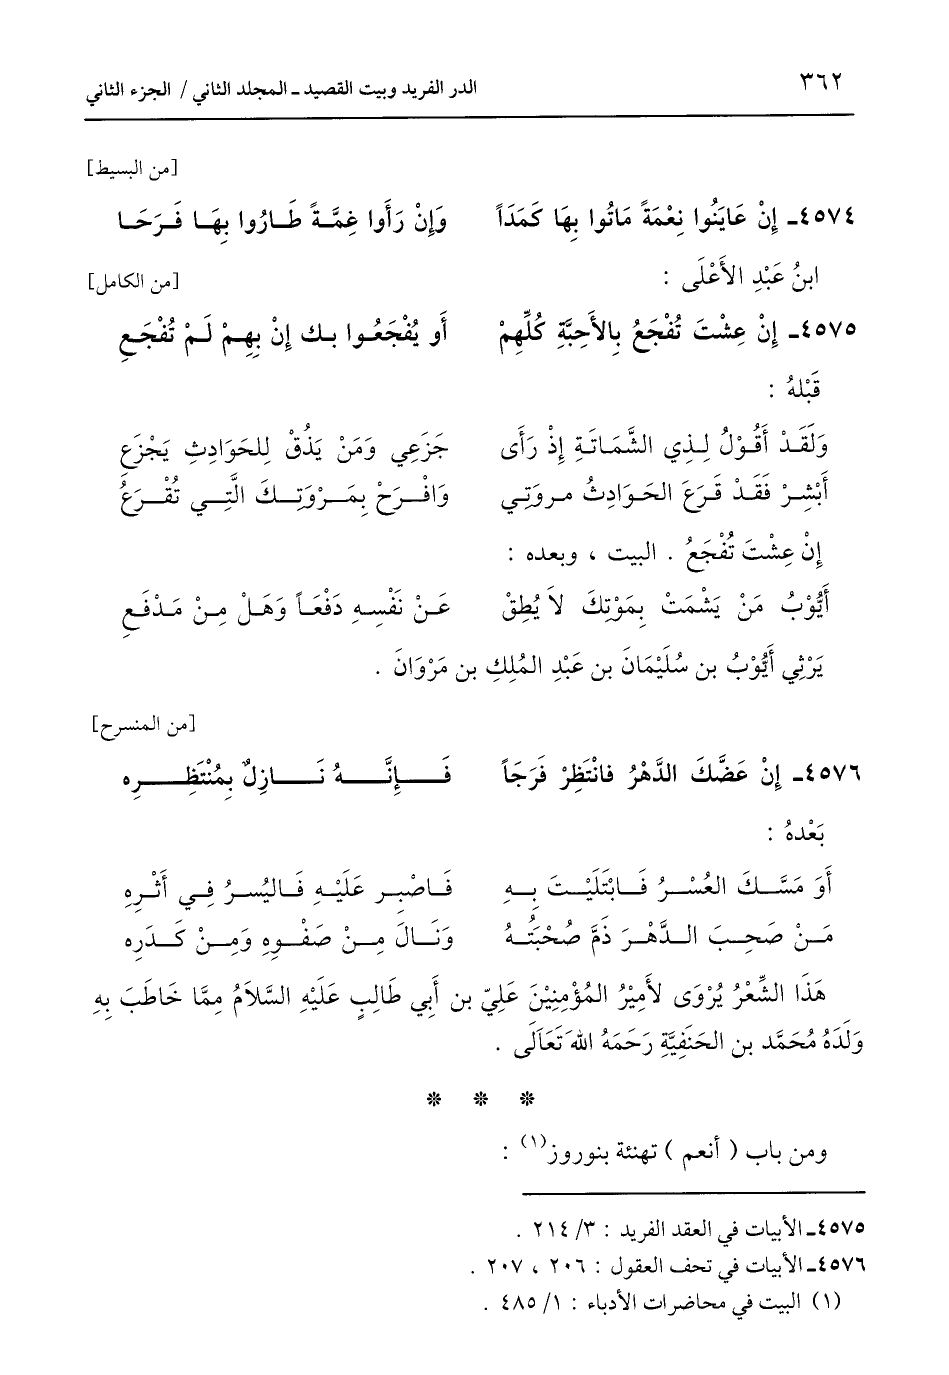 ٣٦٢ الدر الفريد وبيت القصيد ـ المجلد الثاني / الجزء الثاني
[من البسيط]
٤٥٧٤ـ إِنْ عَايَنُوا نِعْمَةً مَاتُوا بِهَا كَمَدَاً وَإِنْ رَأَوا غِمَّةً طَارُوا بِهَا فَرَحَا
ابنُ عَبْدِ الأَعْلَى : [من الكامل]
٤٥٧٥ـ إِنْ عِشْتَ تُفْجَعُ بِالأَحِبَّةِ كُلِّهِمْ أَو يُفْجَعُوا بك إِنْ بِهِمْ لَمْ تُفْجَعِ
قَبْلهُ :
وَلَقَدْ أَقُوْلُ لِذِي الشَّمَاتَةِ إِذْ رَأَى جَزَعِي وَمَنْ يَذُقْ لِلحَوَادِثِ يَجْزَعِ
أَبْشِرْ فَقَدْ قَرَعَ الحَوَادِثُ مروَتِي وَافْرَحْ بِمَرْوَتِكَ الَّتِي تُقْرَعُ
إِنْ عِشْتَ تُفْجَعُ . البيت ، وبعده :
أَيُّوْبُ مَنْ يَشْمَتْ بِمَوْتِكَ لاَ يُطِقْ عَنْ نَفْسِهِ دَفْعَاً وَهَلْ مِنْ مَدْفَعِ
يَرْثِي أَيُّوْبُ بن سُلَيْمَانَ بن عَبْدِ المُلِكِ بن مَرْوَانَ .
[من المنسرح]
٤٥٧٦ـ إِنْ عَضَّكَ الدَّهْرُ فانْتَظِرْ فَرَجَاً فَإِنَّهُ نَازِلٌ بِمُنْتَظِرِه
بَعْدهُ :
أَوَ مَسَّكَ العُسْرُ فَابْتَلَيْتَ بِهِ فَاصْبِر عَلَيْهِ فَاليُسرُ فِي أَثْرِهِ
مَنْ صَحِبَ الدَّهْرَ ذَمَّ صُحْبَتُهُ وَنَالَ مِنْ صَفْوِهِ وَمِنْ كَدَرِه
هَذَا الشِّعْرُ يُرْوَى لأَمِيْرُ المُؤْمِنِيْنَ عَلِيّ بن أَبِي طَالِبٍ عَلَيْهِ السَّلاَمُ مِمَّا خَاطَبَ بِهِ
وَلَدَهُ مُحَمَّد بن الحَنَفِيَّةِ رَحَمَهُ اللهَ تَعَالَى .
* * *
ومن باب ( أنعم ) تهنئة بنوروز(١) :
٤٥٧٥ـ الأبيات في العقد الفريد : ٣/ ٢١٤ .
٤٥٧٦ـ الأبيات في تحف العقول : ٢٠٦ ، ٢٠٧ .
(١) البيت في محاضرات الأدباء : ١/ ٤٨٥ .